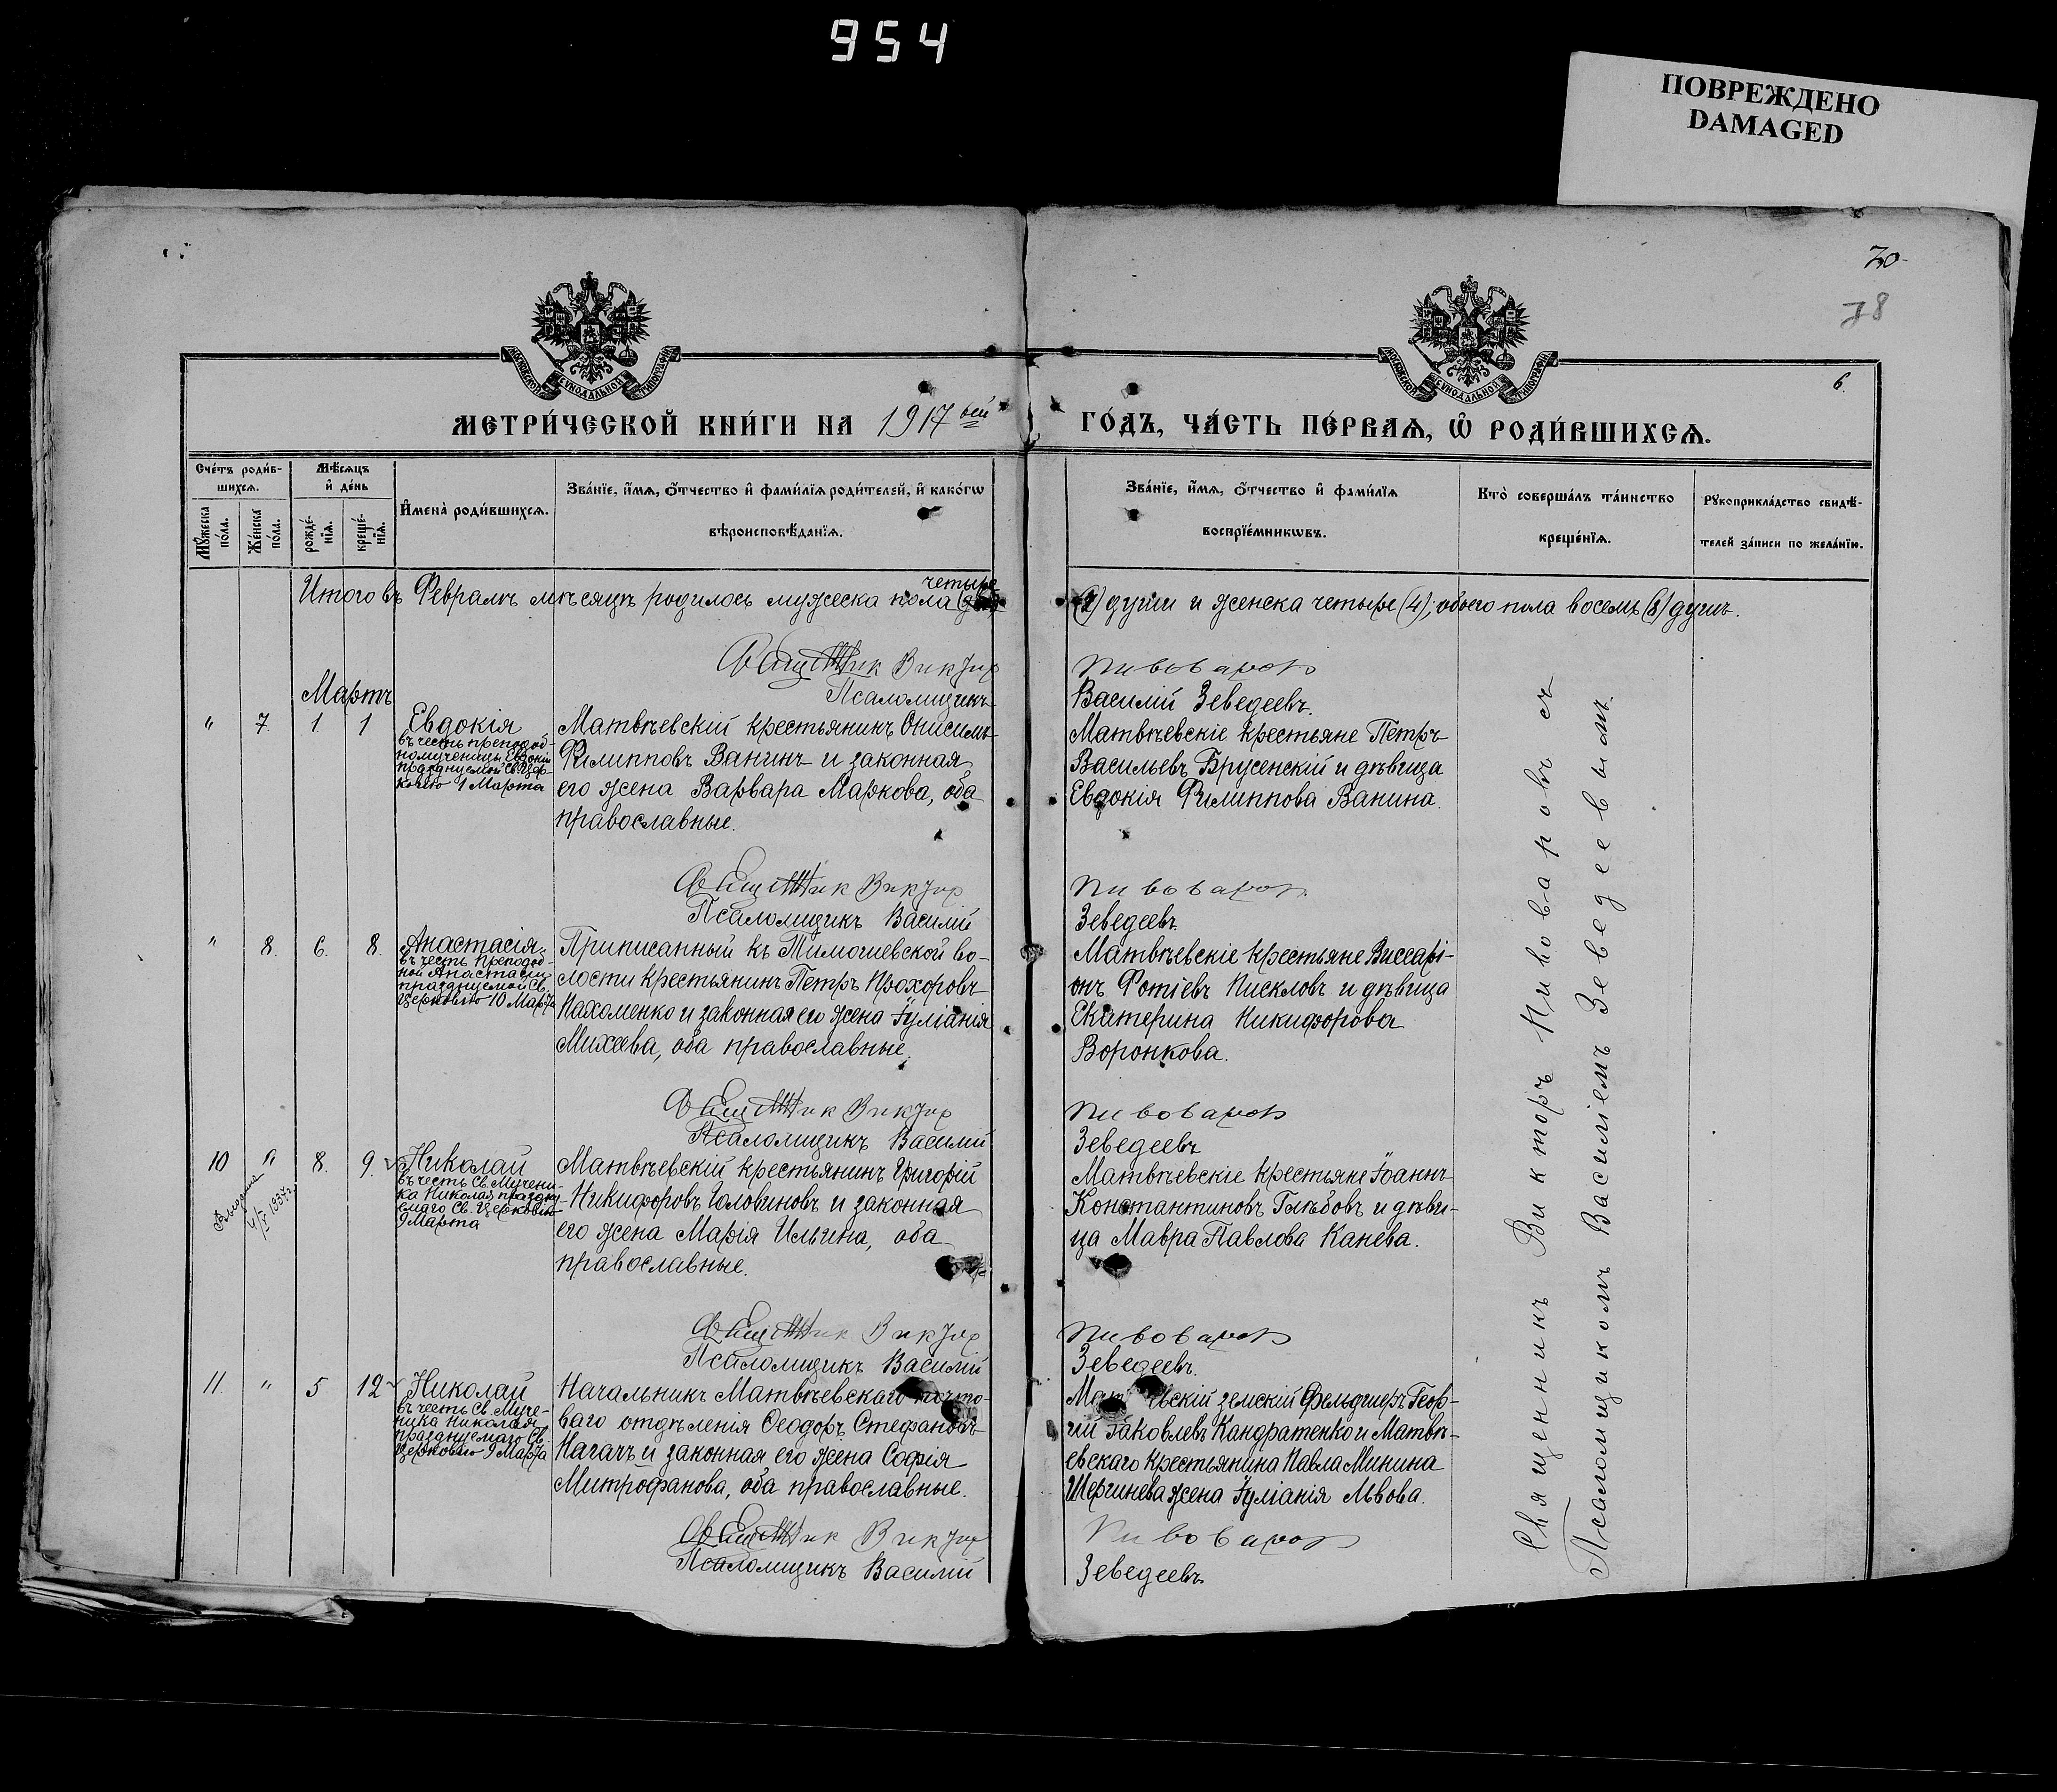 954
ПОВРЕЖДЕНО
DAMAGED
70
78
6.
МОСКОВСКОЙ СѴНОДАЛЬНОЙ ТИПОГРАФІИ
МОСКОВСКОЙ СѴНОДАЛЬНОЙ ТИПОГРАФІИ
МЕТРИ́ЧЕСКОЙ КНИ́ГИ НА 1917 ГО́ДЪ, ЧА́СТЬ ПЕ́РВАѦ, Ѡ҆ РОДИ́ВШИХСѦ.
Сче́тъ роди́в-
шихсѧ.
Мꙋ́жеска по́ла.
Же́нска по́ла.
Мѣ́сѧцъ
и҆ де́нь
рожде́-
нїѧ.
креще́-
нїѧ.
И҆мена̀ роди́вшихсѧ.
Зва́нїе, и҆́мѧ, ѻ҆́тчество и҆ фами́лїѧ роди́телей, и҆ како́гѡ
вѣроисповѣ́данїѧ.
Зва́нїе, и҆́мѧ, ѻ҆́тчество и҆ фами́лїѧ
воспрїе́мникѡвъ.
Кто̀ соверша́лъ та́инство
креще́нїѧ.
Рꙋкоприкла́дство свидѣ́-
телей за́писи по жела́нїю.
четыре
Итого въ Февралѣ мѣсяцѣ родилось мужеска пола
души и женска четыре (4); обоего пола восемь (8) душъ.
Священник Виктор Пивоваров
Псаломщикъ Василій Зеведеевъ.
Мартъ
" 7. 1. 1 Евдокія
въ честь преподоб-
номученицы Евдокіи
празднуемой Св. Цер-
ковью 1 Марта
Матвѣевскій крестьянинъ Онисимъ
Филипповъ Ванинъ и законная
его жена Варвара Маркова, оба
православные.
Матвѣевскіе крестьяне Петръ
Васильевъ Брусенскій и дѣвица
Евдокія Филиппова Ванина.
Священник Виктор Пивоваров
Псаломщикъ Василій Зеведеевъ.
" 8. 6. 8. Анастасія
въ честь Преподоб-
ной Анастасіи
празднуемой Св.
Церковью 10 Марта
Приписанный къ Тимошевской во-
лости крестьянинъ Петръ Прохоровъ
Пахоменко и законная его жена Іуліанія
Михеева, оба православные.
Матвѣевскіе крестьяне Виссарі-
онъ Фотіевъ Писковъ и дѣвица
Екатерина Никифорова
Воронкова.
Священник Виктор Пивоваров
Псаломщикъ Василій Зеведеевъ
10 " 8. 9. Николай
въ честь Св. Мучени-
ка Николая праздну-
емаго Св. Церковью
9 Марта
1937г.
Матвѣевскій крестьянинъ Григорій
Никифоровъ Головиновъ и законная
его жена Марія Ильина, оба
православные.
Матвѣевскіе крестьяне Іоаннъ
Константиновъ Глѣбовъ и дѣви-
ца Мавра Павлова Канева.
Священник Виктор Пивоваров
Псаломщикъ Василій Зеведеевъ.
11. " 5 12 Николай
въ честь Св. Муче-
ника Николая
празднуемаго Св.
Церковью 9 Марта
Начальникъ Матвѣевскаго почто-
ваго отдѣленія Ѳеодоръ Стефановъ
Нагачъ и законная его жена София
Митрофанова, оба православные.
земскій Фельдшеръ Геор-
гій Іаковлевъ Кандратенко и Матвѣ-
евскаго крестьянина Павла Минина
Шергинева жена Іуліанія Львова.
Священник Виктор Пивоваров
Псаломщикъ Василій Зеведеевъ
Священникъ Викторъ Пивоваровъ съ
Псаломщикомъ Василіемъ Зеведеевымъ.